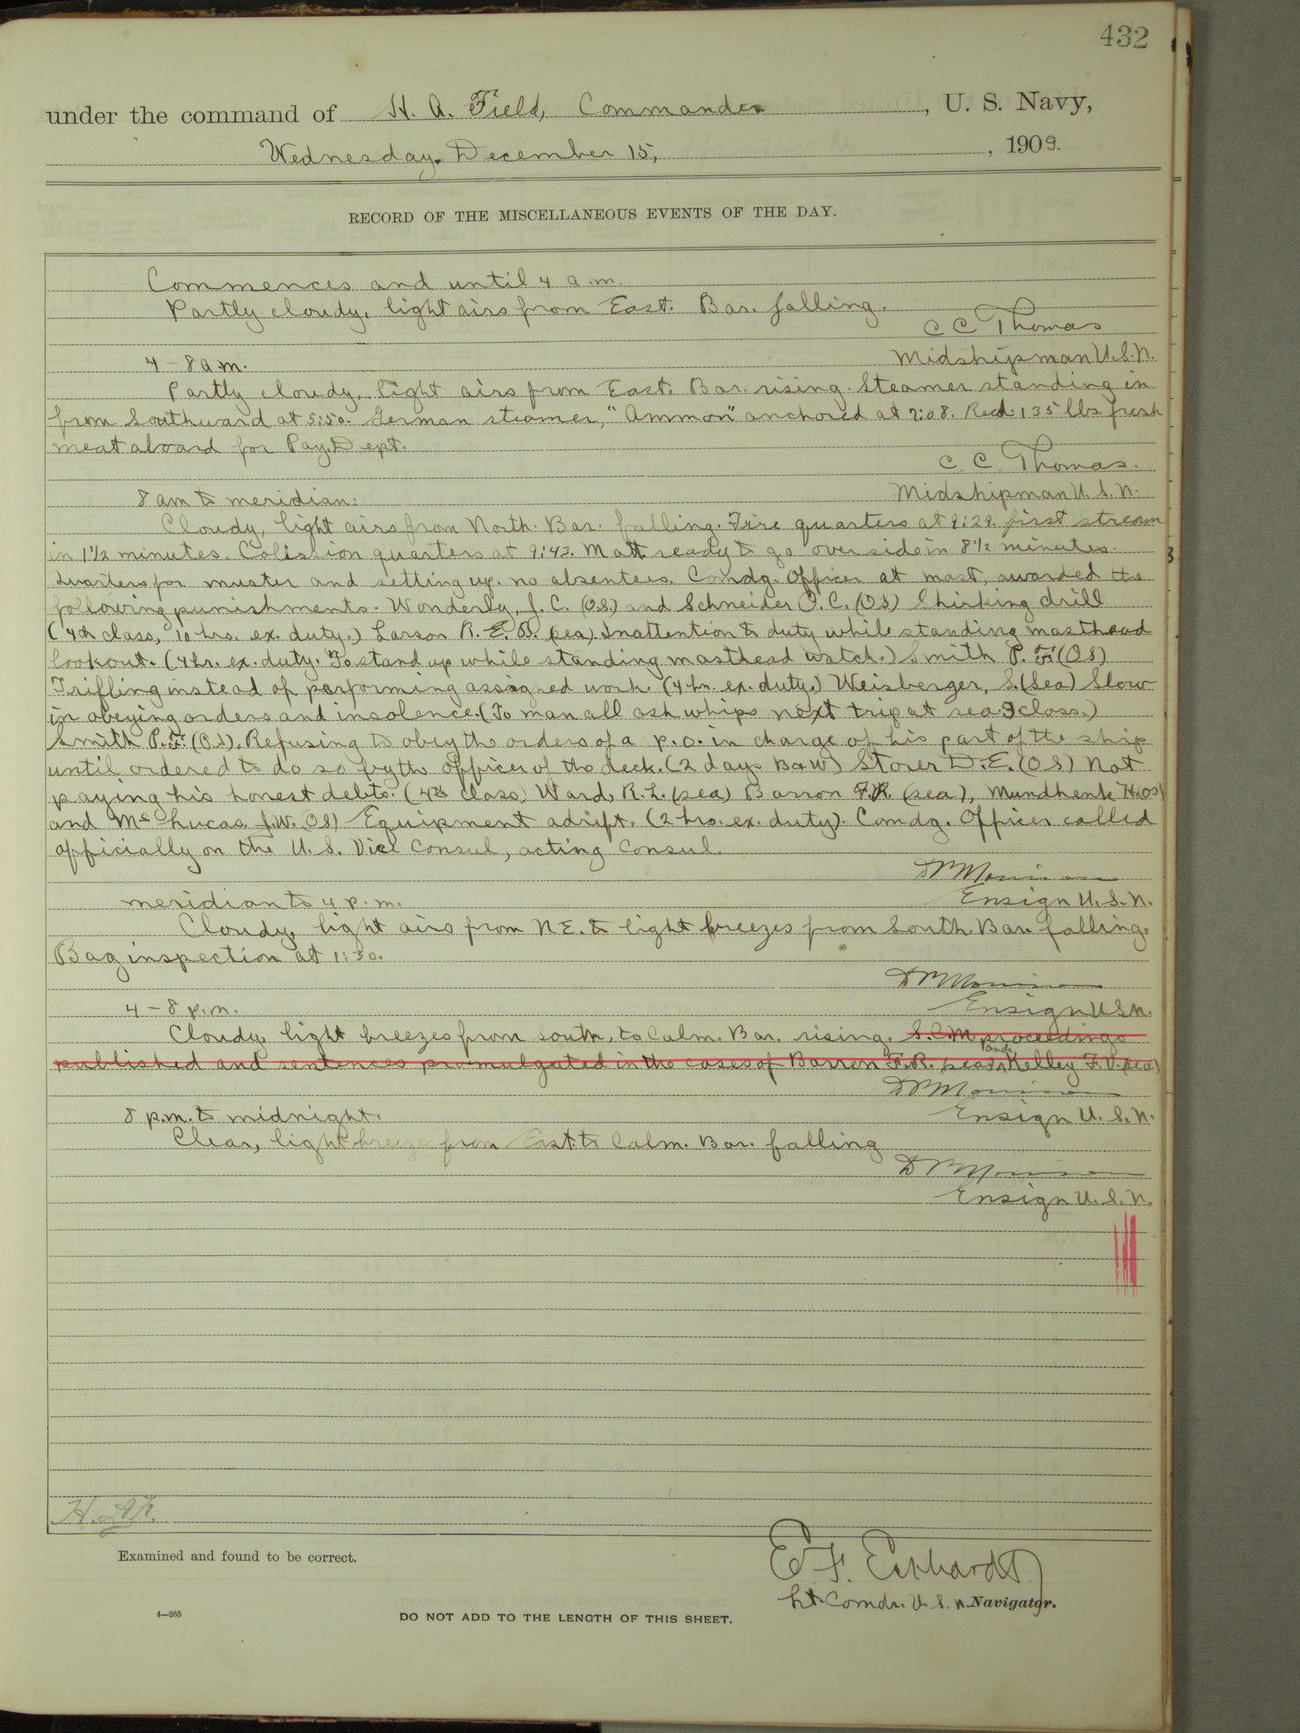 432
under the command of H. A. Field, Commander, U. S. Navy,
Wednesday, December 15, , 1909.
RECORD OF THE MISCELLANEOUS EVENTS OF THE DAY.
Commences and until 4 a.m.
Partly cloudy, light airs from East. Bar. falling.
C C Thomas
Midshipman U.S.N.
4 – 8 a.m.
Partly cloudy, light airs from East. Bar. rising. Steamer standing in
from Southward at 5:50. German steamer, "Ammon" anchored at 7:08. Recd. 135 lbs. fresh
meat aboard for Pay Dept.
C. C. Thomas.
Midshipman U. S. N.
8 am to meridian:
Cloudy, light airs from North. Bar. falling. Fire quarters at 9:29. first stream
in 1½ minutes. Colission quarters at 9:42. Matt ready to go over side in 8½ minutes.
Quarters for muster and setting up. no absentees. Comdg. Officer at mast, awarded the
following punishments. Wonderly, J. C. (O.S.) and Schneider O. C. (OS) Shirking drill
(4th class, 10 hrs. ex. duty.) Larson R. E. B. (sea) Inattention to duty while standing masthead
lookout. (4 hr. ex. duty. To stand up while standing masthead watch.) Smith P. F. (OS)
Trifling instead of performing assigned work. (4 hr. ex. duty.) Weisberger, S. (Sea) Slow
in obeying orders and insolence. (To man all ash whips next trip at sea 3 class.)
Smith P. F. (OS). Refusing to obey the orders of a p. o. in charge of his part of the ship
until ordered to do so by the officer of the deck. (2 days B & W) Storer D. E. (OS) Not
paying his honest debts. (4th class) Ward, R. L. (sea) Barron F. R. (sea), Mundhenk H. (OS)
and McLucas J.W. (OS) Equipment adrift. (2 hrs. ex. duty). Comdg. Officer called
officially on the U. S. Vice Consul, acting Consul.
Ensign U. S. N.
meridian to 4 p. m.
Cloudy, light airs from NE. to light breezes from South. Bar. falling.
Bag inspection at 1:30.
Ensign U S N.
4 – 8 p.m.
Cloudy, light breezes from south, to Calm. Bar. rising. S.C.M. proceedings
published and sentences promulgated in the cases of Barron F. R. (sea) and Kelley F. V. (sea)
Ensign U. S. N.
8 p.m. to midnight.
Clear, light breezes from East to Calm. Bar. falling
Ensign U. S. N.
Examined and found to be correct.
E. F. Eckhardt
Lt Comdr. U. S. N. Navigator.
4—265
DO NOT ADD TO THE LENGTH OF THIS SHEET.